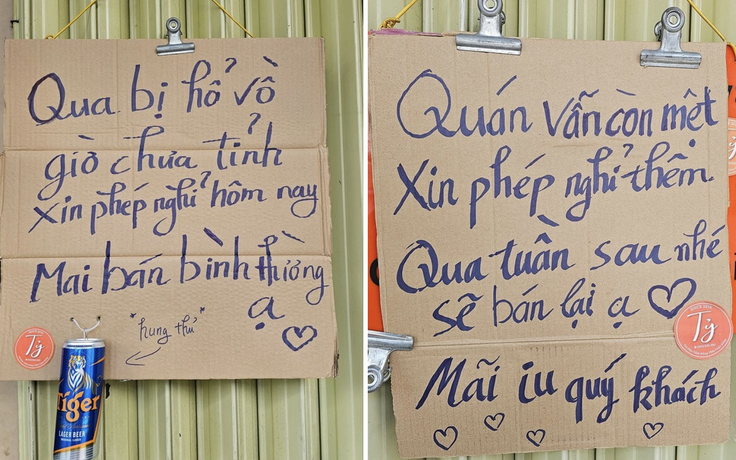 Qua bị hổ vồ
giờ chưa tỉnh
Xin phép nghỉ hôm nay
Mai bán bình thường
ạ
"hung thủ"
Tỷ
Tiger
LAGER BEER
Quán vẫn còn mệt
Xin phép nghỉ thêm
Qua tuần sau nhé
sẽ bán lại ạ
Tỷ
Mãi iu quý khách